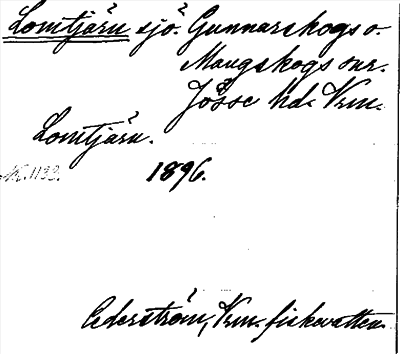 Lomtjärn sjö. Gunnarskogs o.
Mangskogs snr.
Jösse hd. Vrm.
Lomtjärn.
1896.
Cederström, Vrm. fiskevatten.